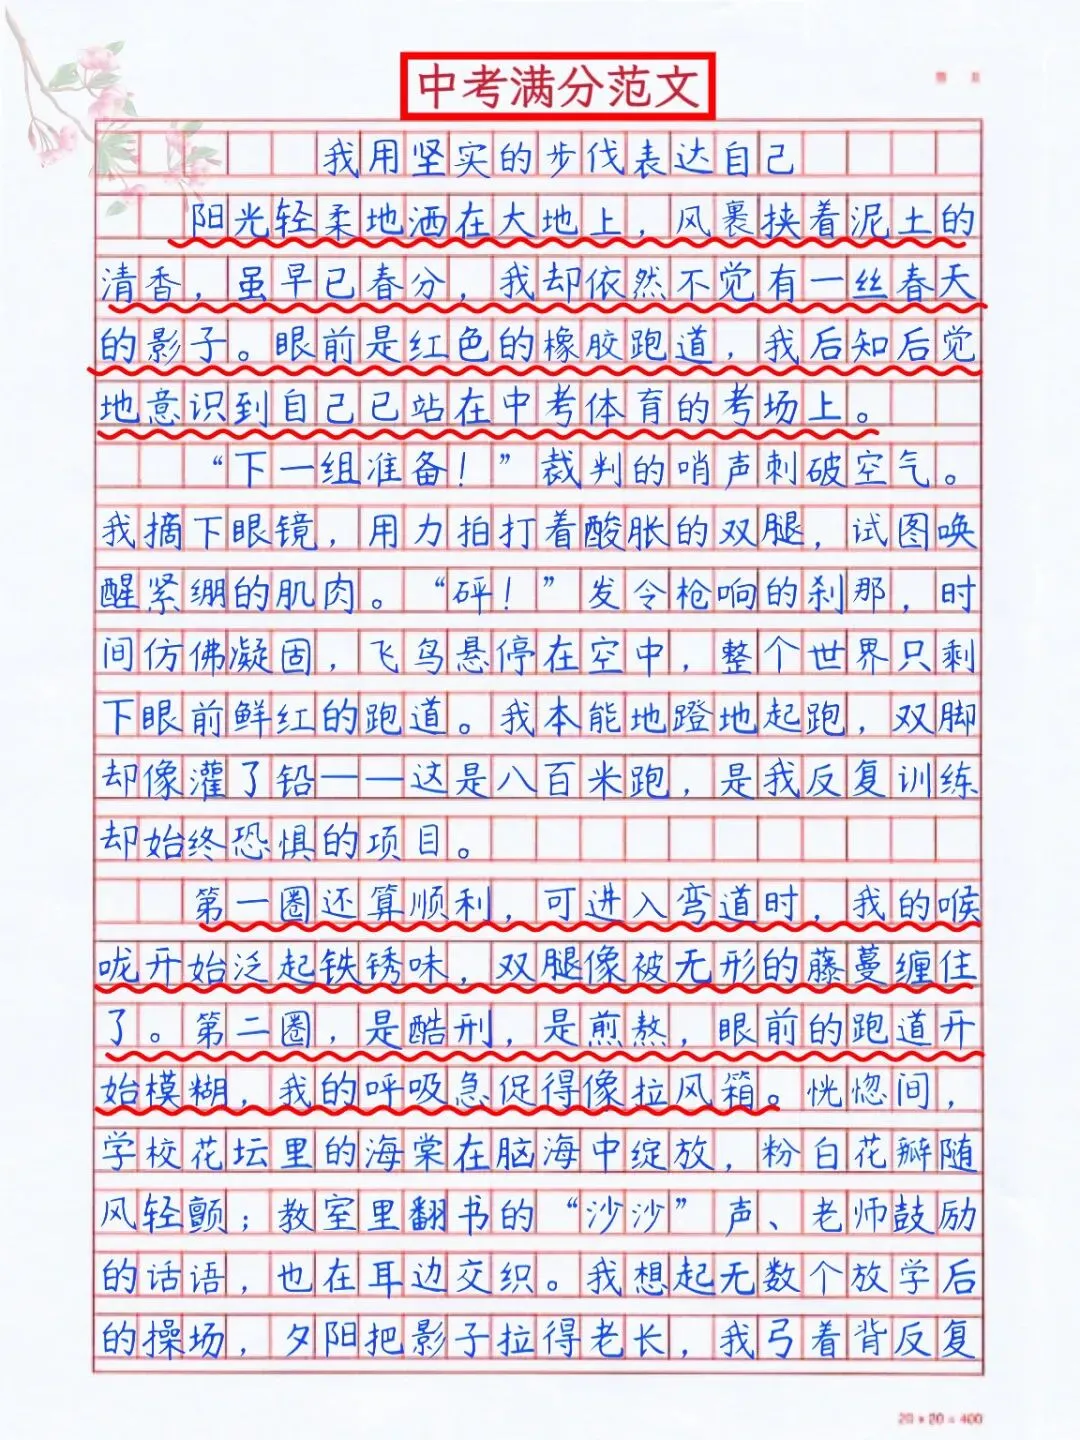 中考满分范文
我用坚实的步伐表达自己
阳光轻柔地洒在大地上，风裹挟着泥土的
清香，虽早已春分，我却依然不觉有一丝春天
的影子。眼前是红色的橡胶跑道，我后知后觉
地意识到自己已站在中考体育的考场上。
“下一组准备！”裁判的哨声刺破空气。
我摘下眼镜，用力拍打着酸胀的双腿，试图唤
醒紧绷的肌肉。“砰！”发令枪响的刹那，时
间仿佛凝固，飞鸟悬停在空中，整个世界只剩
下眼前鲜红的跑道。我本能地蹬地起跑，双脚
却像灌了铅——这是八百米跑，是我反复训练
却始终恐惧的项目。
第一圈还算顺利，可进入弯道时，我的喉
咙开始泛起铁锈味，双腿像被无形的藤蔓缠住
了。第二圈，是酷刑，是煎熬，眼前的跑道开
始模糊，我的呼吸急促得像拉风箱。恍惚间，
学校花坛里的海棠在脑海中绽放，粉白花瓣随
风轻颤；教室里翻书的“沙沙”声、老师鼓励
的话语，也在耳边交织。我想起无数个放学后
的操场，夕阳把影子拉得老长，我弓着背反复
20×20=400